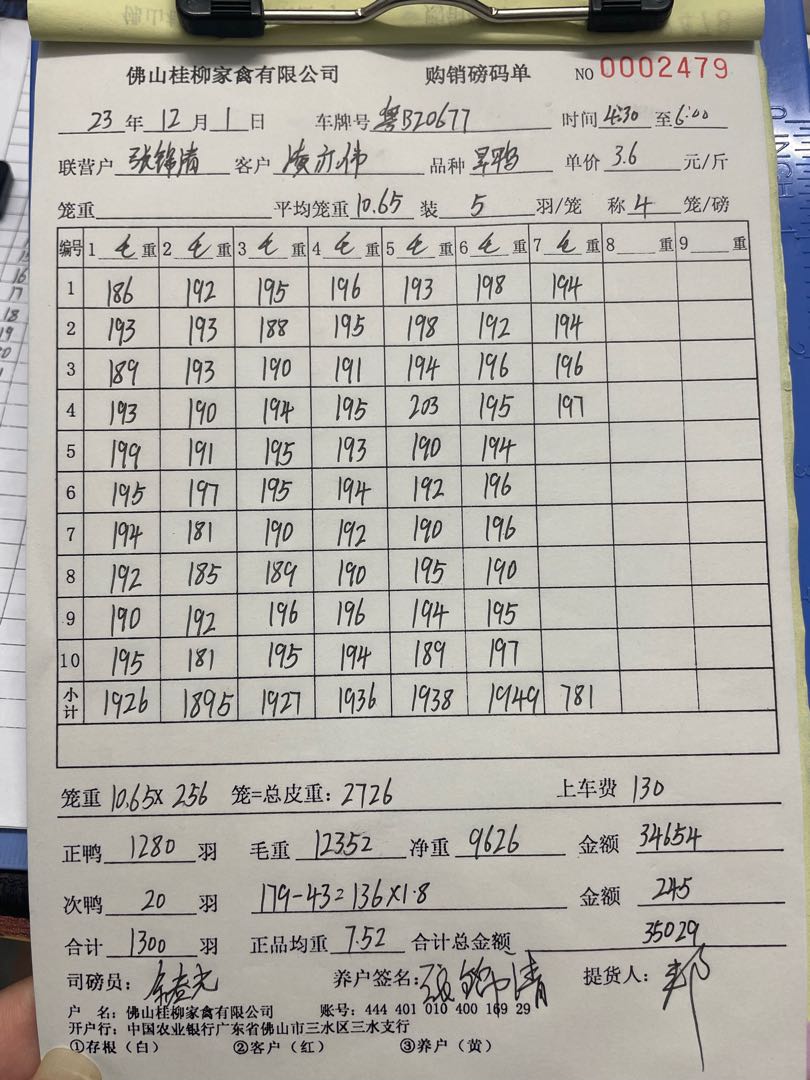 佛山桂柳家禽有限公司 购销磅码单 NO 0002479
23年12月1日 车牌号 粤B20677 时间 4:30 至 6:00
联营户 张锦清 客户 品种 单价 3.6 元/斤
笼重 平均笼重 10.65 装 5 羽/笼 称 4 笼/磅
编号 1 毛 重 2 毛 重 3 毛 重 4 毛 重 5 毛 重 6 毛 重 7 毛 重 8 重 9 重
1 186 192 195 196 193 198 194
2 193 193 188 195 198 192 194
3 189 193 190 191 194 196 196
4 193 190 194 195 203 195 197
5 199 191 195 193 190 194
6 195 197 195 194 192 196
7 194 181 190 192 190 196
8 192 185 189 190 195 190
9 190 192 196 196 194 195
10 195 181 195 194 189 197
小计 1926 1895 1927 1936 1938 1949 781
笼重 10.65X 256 笼=总皮重：2726 上车费 130
正鸭 1280 羽 毛重 12352 净重 9626 金额 34654
次鸭 20 羽 179-43=136X1.8 金额 245
合计 1300 羽 正品均重 7.52 合计总金额 35029
司磅员： 养户签名：张锦清 提货人：
户 名：佛山桂柳家禽有限公司 账号：444 401 010 400 169 29
开户行：中国农业银行广东省佛山市三水区三水支行
①存根（白） ②客户（红） ③养户（黄）